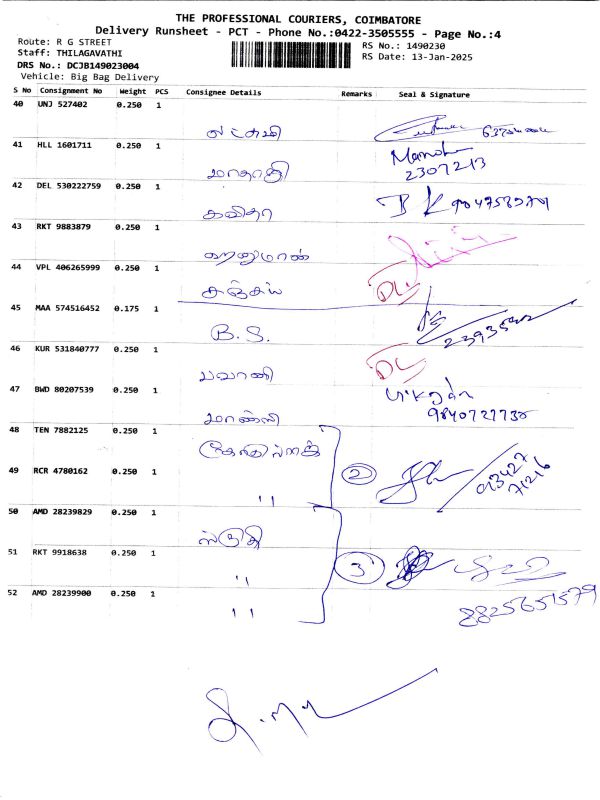 THE PROFESSIONAL COURIERS, COIMBATORE
Delivery Runsheet - PCT - Phone No.:0422-3505555 - Page No.:4
Route: R G STREET
Staff: THILAGAVATHI
DRS No.: DCJB149023004
Vehicle: Big Bag Delivery
RS No.: 1490230
RS Date: 13-Jan-2025
S No Consignment No Weight PCS Consignee Details Remarks Seal & Signature
40 UNJ 527402 0.250 1
லட்சுமி
41 HLL 1601711 0.250 1
Manoh
2307213
42 DEL 530222759 0.250 1
கவிதா
B K
43 RKT 9883879 0.250 1
ஹனுமான்
44 VPL 406265999 0.250 1
சஞ்சய்
DL
45 MAA 574516452 0.175 1
B.S.
46 KUR 531840777 0.250 1
பவானி
DL
47 BWD 80207539 0.250 1
மான்ஸி
9840727730
48 TEN 7882125 0.250 1
49 RCR 4780162 0.250 1
"
2
93427
71216
50 AMD 28239829 0.250 1
ஸ்ருதி
51 RKT 9918638 0.250 1
"
3
52 AMD 28239900 0.250 1
"
8825651579